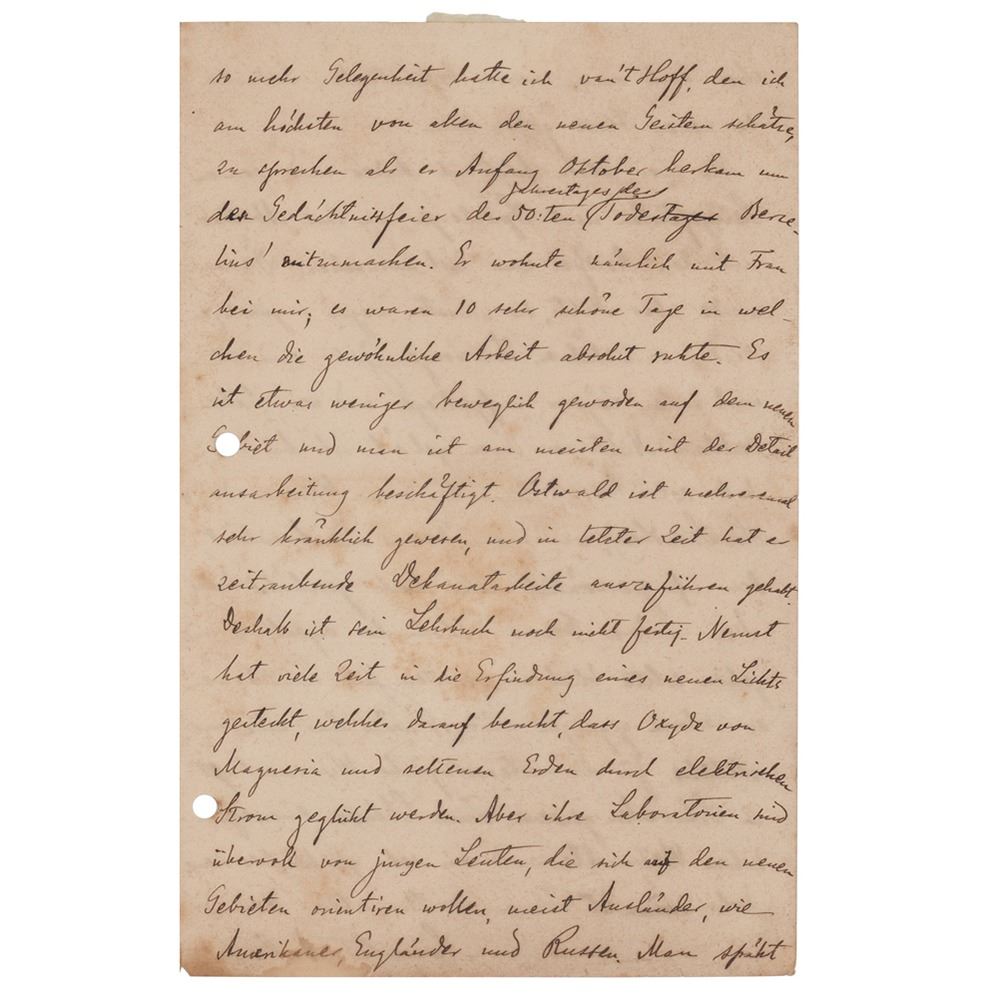 so mehr Gelegenheit hatte ich van't Hoff, den ich
am höchsten von allen den neuen Geistern schätze,
zu sprechen als er Anfang Oktober herkam um
Jahrestages des
der Gedächtnissfeier der 50:ten Todestages Berze-
lius' mitzumachen. Er wohnte nämlich mit Frau
bei mir; es waren 10 sehr schöne Tage in wel-
chen die gewöhnliche Arbeit absolut ruhte. Es
ist etwas weniger beweglich geworden auf dem neuen
Gebiet und man ist am meisten mit der Detail
ausarbeitung beschäftigt. Ostwald ist mehreremal
sehr kränklich gewesen, und in letzter Zeit hat er
zeitraubende Dekanatarbeite auszuführen gehabt.
Deshalb ist sein Lehrbuch noch nicht fertig. Nernst
hat viele Zeit in die Erfindung eines neuen Lichts
gesteckt, welches darauf beruht, dass Oxyde von
Magnesia und seltenen Erden durch elektrischen
Strom geglüht werden. Aber ihre Laboratorien sind
übervoll von jungen Leuten, die sich auf den neuen
Gebieten orientiren wollen, meist Ausländer, wie
Amerikaner, Engländer und Russen. Man späht